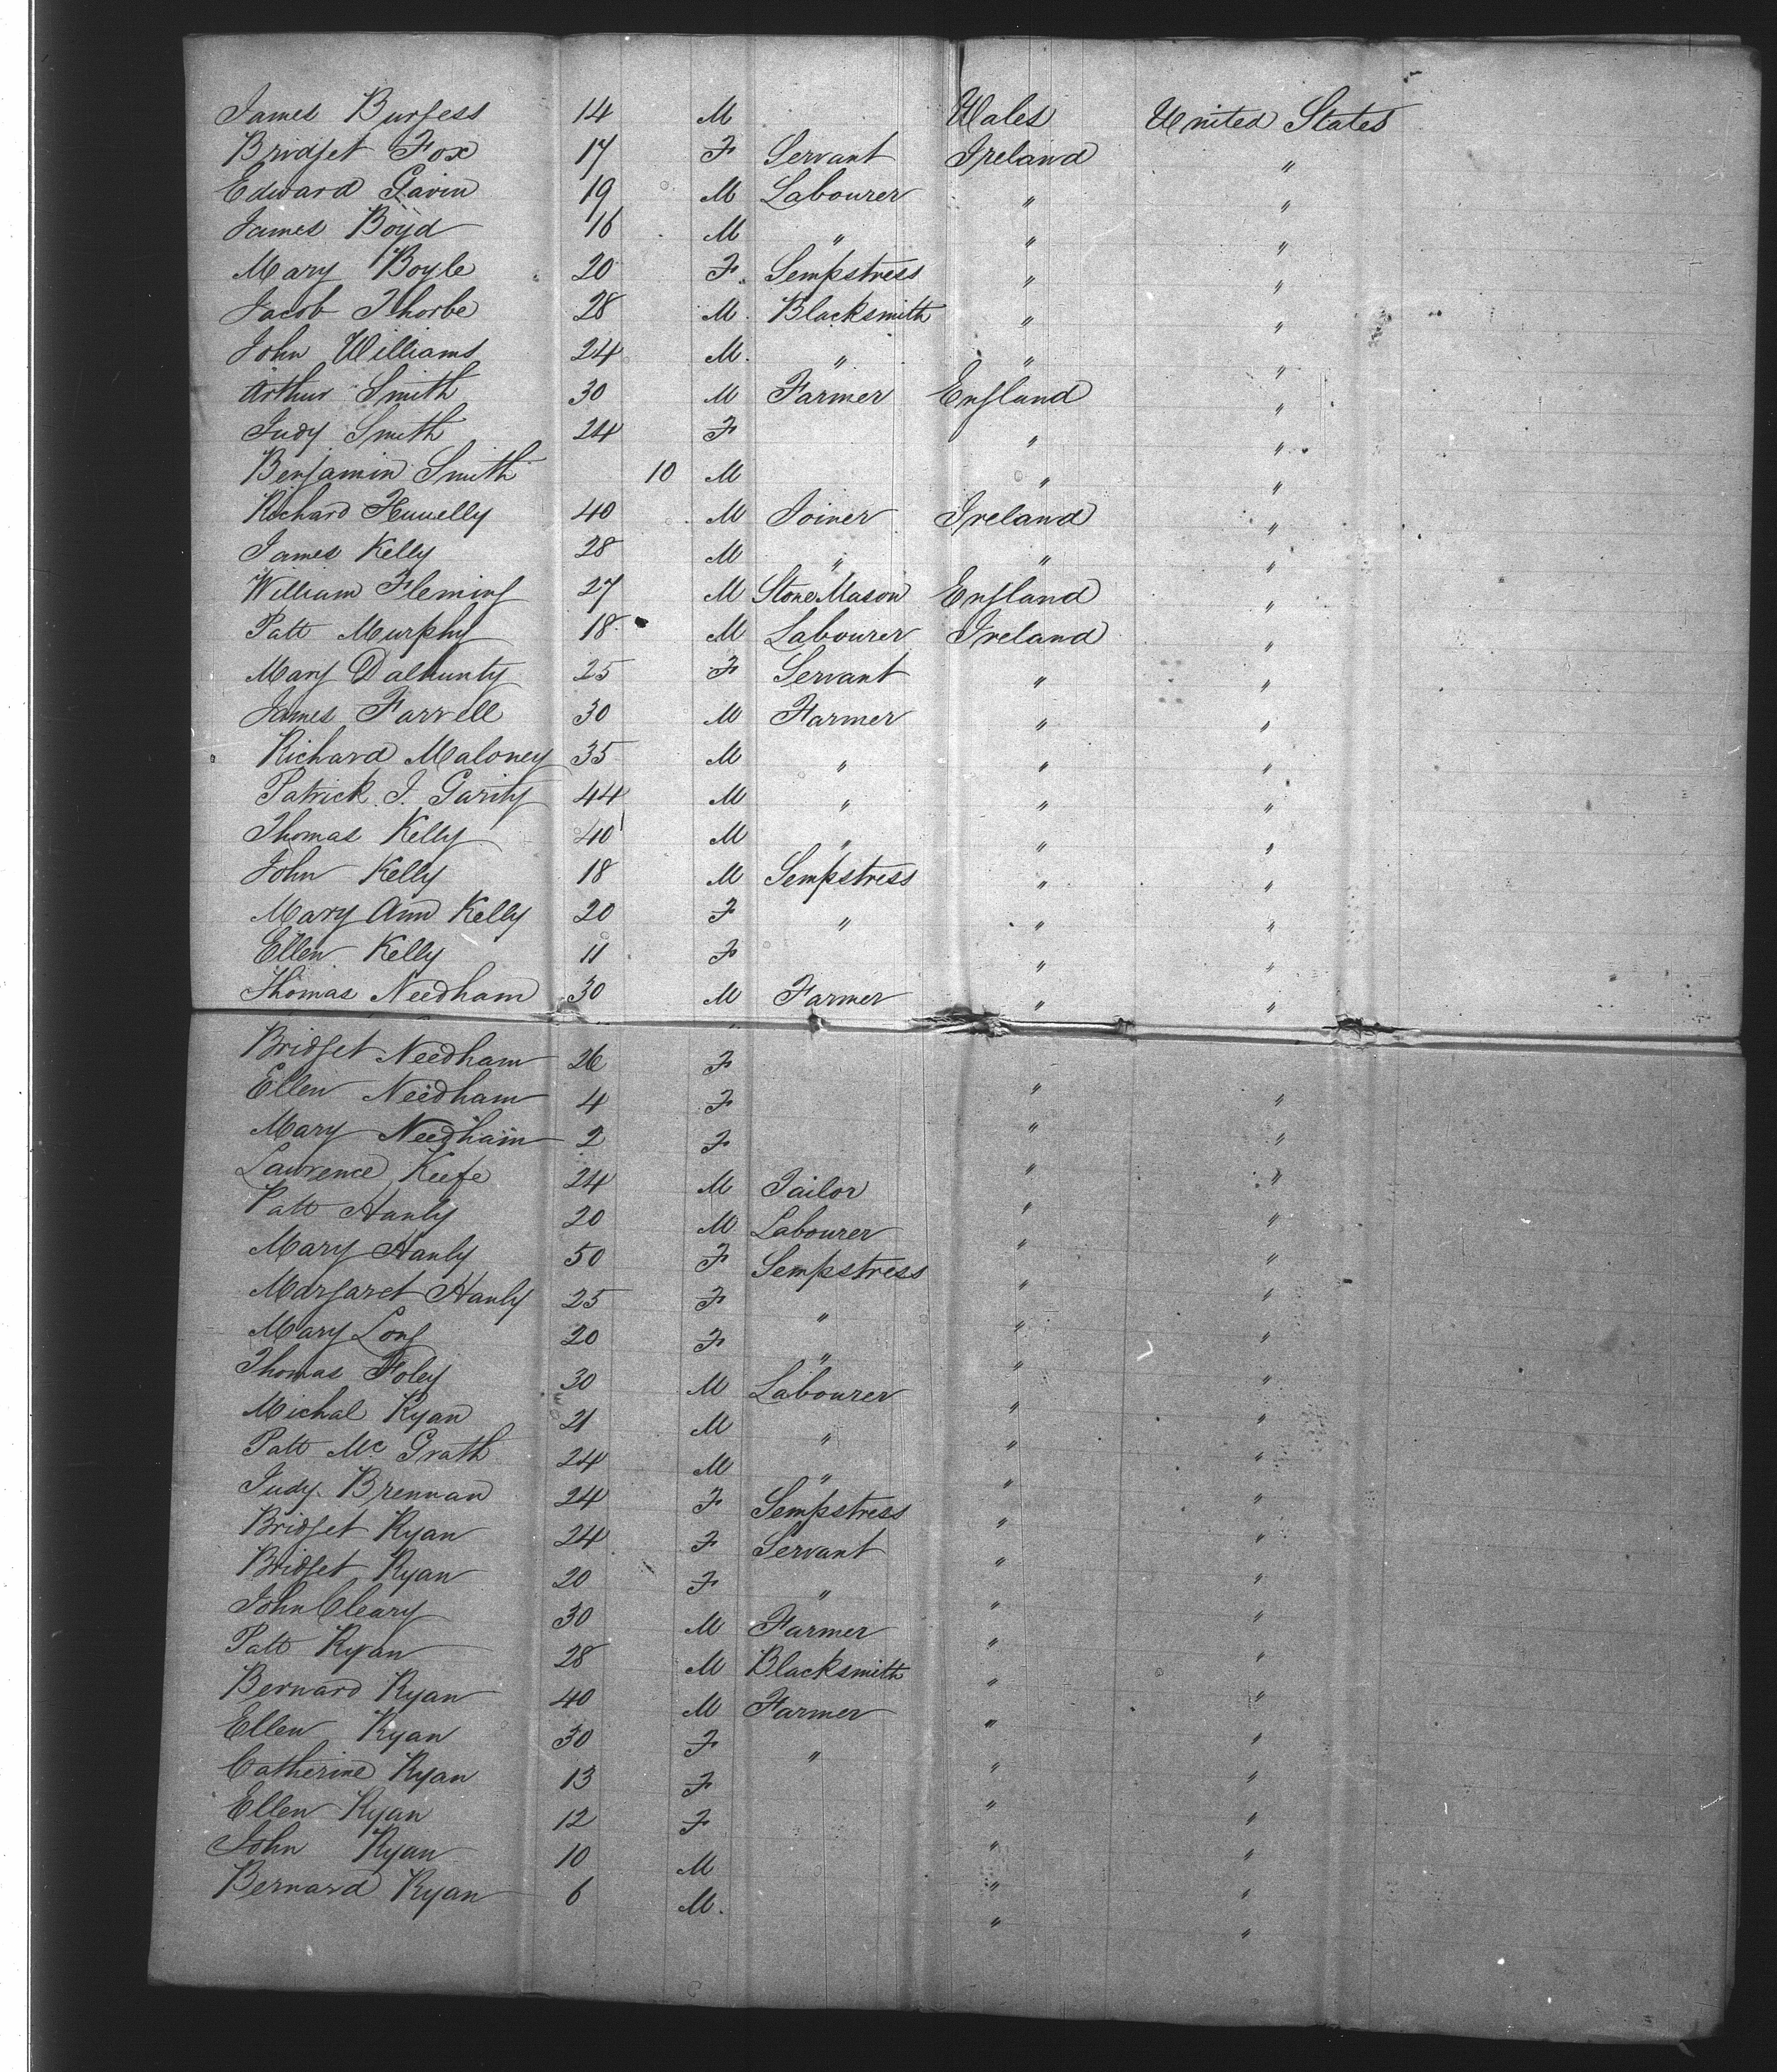 James Burgess 14 M Wales United States
Bridget Fox 17 F Servant Ireland "
Edward Gavin 19 M Labourer " "
James Boyd 16 M " " "
Mary Boyle 20 F. Sempstress " "
Jacob Thorbe 28 M. Blacksmith " "
John Williams 24 M. " " "
Arthur Smith 30 M Farmer England "
Judy Smith 24 F " "
Benjamin Smith 10 M " "
Richard 40 M Joiner Ireland "
James Kelly 28 M " " "
William Fleming 27 M Stone Mason England "
Patt Murphy 18 M Labourer Ireland "
Mary Dalhunty 25 F Servant " "
James Farrell 30 M Farmer " "
Richard Maloney 35 M " " "
Patrick J. Garity 44 M " " "
Thomas Kelly 40 M " " "
John Kelly 18 M Sempstress " "
Mary Ann Kelly 20 F " " "
Ellen Kelly 11 F " "
Thomas Needham 30 M Farmer " "
Bridget Needham 26 F " "
Ellen Needham 4 F " "
Mary Needham 2 F " "
Lawrence Keefe 24 M Tailor " "
Patt Hanly 20 M Labourer " "
Mary Hanly 50 F Sempstress " "
Margaret Hanly 25 F " " "
Mary Long 20 F " " "
Thomas Foley 30 M Labourer " "
Michal Ryan 21 M " " "
Patt Mc Grath 24 M " " "
Judy Brennan 24 F Sempstress " "
Bridget Ryan 24 F Servant " "
Bridget Ryan 20 F " " "
John Cleary 30 M Farmer " "
Patt Ryan 28 M Blacksmith " "
Bernard Ryan 40 M Farmer " "
Ellen Ryan 30 F " " "
Catherine Ryan 13 F " "
Ellen Ryan 12 F " "
John Ryan 10 M " "
Bernard Ryan 6 M. " "